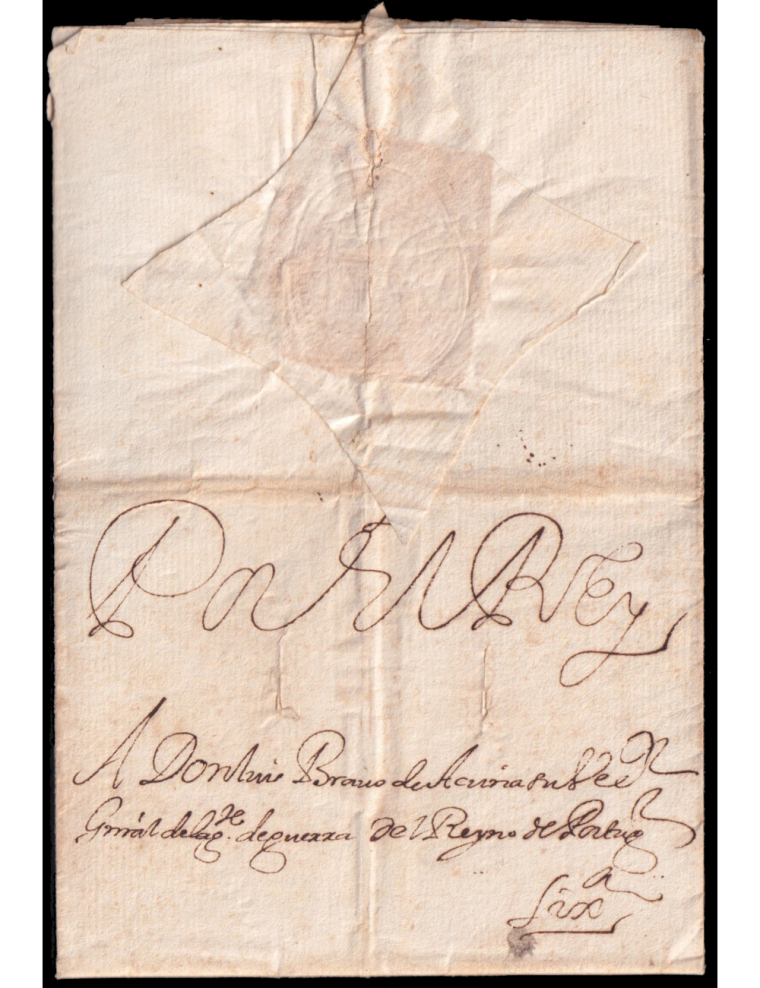 Por El Rey
A Don luis Brauo de Acuña su Veedr
Gnrál de la ge. de guerra del Reyno de Portugl
Lixa